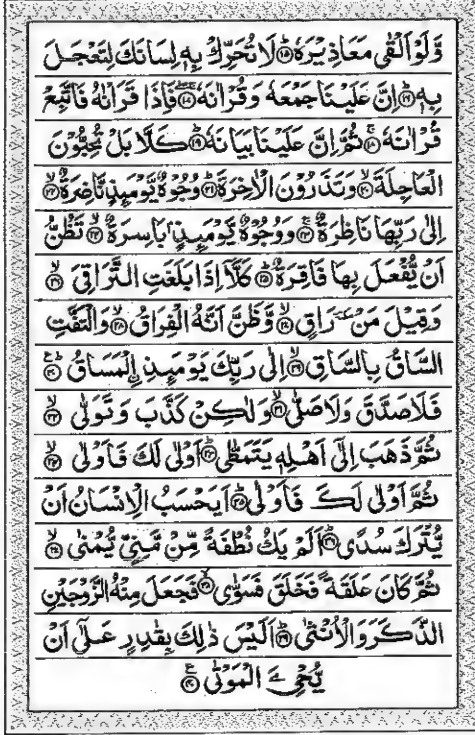 وَّلَوْ اَلْقٰى مَعَاذِيْرَهٗ ﴿۱۵﴾ لَا تُحَرِّكْ بِهٖ لِسَانَكَ لِتَعْجَلَ
بِهٖ ﴿۱۶﴾ اِنَّ عَلَيْنَا جَمْعَهٗ وَقُرْاٰنَهٗ ﴿۱۷﴾ فَاِذَا قَرَاْنٰهُ فَاتَّبِعْ
قُرْاٰنَهٗ ﴿۱۸﴾ ثُمَّ اِنَّ عَلَيْنَا بَيَانَهٗ ﴿۱۹﴾ كَلَّا بَلْ تُحِبُّوْنَ
الْعَاجِلَةَ ﴿۲۰﴾ وَتَذَرُوْنَ الْاٰخِرَةَ ﴿۲۱﴾ وُجُوْهٌ يَّوْمَئِذٍ نَّاضِرَةٌ ﴿۲۲﴾
اِلٰى رَبِّهَا نَاظِرَةٌ ﴿۲۳﴾ وَوُجُوْهٌ يَّوْمَئِذٍۭ بَاسِرَةٌ ﴿۲۴﴾ تَظُنُّ
اَنْ يُّفْعَلَ بِهَا فَاقِرَةٌ ﴿۲۵﴾ كَلَّاۤ اِذَا بَلَغَتِ التَّرَاقِيَ ﴿۲۶﴾
وَقِيْلَ مَنْ ٚ رَاقٍ ﴿۲۷﴾ وَّظَنَّ اَنَّهُ الْفِرَاقُ ﴿۲۸﴾ وَالْتَفَّتِ
السَّاقُ بِالسَّاقِ ﴿۲۹﴾ اِلٰى رَبِّكَ يَوْمَئِذِ ِ۟الْمَسَاقُ ﴿۳۰﴾
فَلَا صَدَّقَ وَلَا صَلّٰى ﴿۳۱﴾ وَلٰكِنْ كَذَّبَ وَتَوَلّٰى ﴿۳۲﴾
ثُمَّ ذَهَبَ اِلٰۤى اَهْلِهٖ يَتَمَطّٰى ﴿۳۳﴾ اَوْلٰى لَكَ فَاَوْلٰى ﴿۳۴﴾
ثُمَّ اَوْلٰى لَكَ فَاَوْلٰى ﴿۳۵﴾ اَيَحْسَبُ الْاِنْسَانُ اَنْ
يُّتْرَكَ سُدًى ﴿۳۶﴾ اَلَمْ يَكُ نُطْفَةً مِّنْ مَّنِيٍّ يُّمْنٰى ﴿۳۷﴾
ثُمَّ كَانَ عَلَقَةً فَخَلَقَ فَسَوّٰى ﴿۳۸﴾ فَجَعَلَ مِنْهُ الزَّوْجَيْنِ
الذَّكَرَ وَالْاُنْثٰى ﴿۳۹﴾ اَلَيْسَ ذٰلِكَ بِقٰدِرٍ عَلٰۤى اَنْ
يُّحْيِۦَ الْمَوْتٰى ﴿۴۰﴾